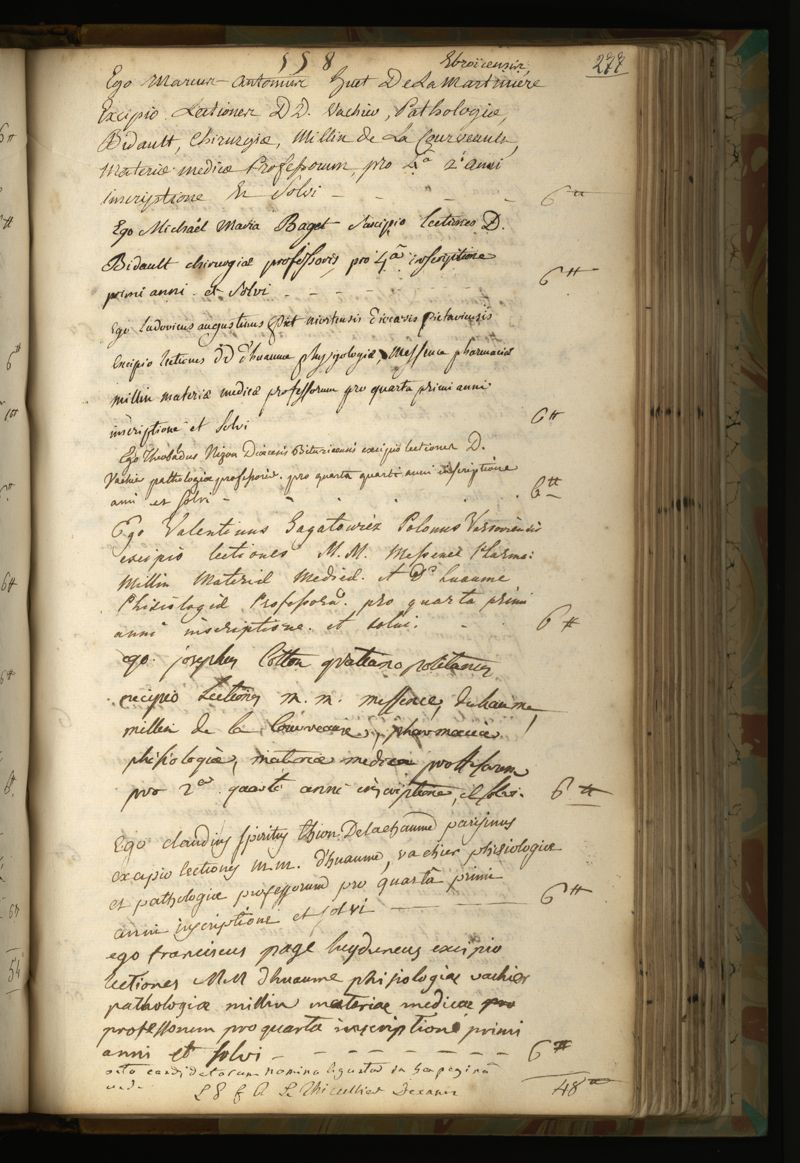 558
Ebroicensis
277
Ego Marcus Antonius huet De La Martiniere
Excipio Lectiones D.D. Vachier, Pathologiæ,
Bidault, Chirurgiæ, Millin de La Courveault,
Materiæ medicæ Professorum, pro 4.a 2i anni
inscriptione Et Solvi - - - - 6 tt
Ego Michaël Maria Baget Excipio lectiones D.
Bidault chirurgiæ professoris, pro 4.a inscriptione
primi anni. et Solvi - - - - - 6 tt
Ego Ludovicus augustinus niortensis diœcesis pictaviensis
Excipio lectiones DD Dhuaume physiologiæ, Messence pharmaciæ
millin materiæ medicæ professorum pro quarta primi anni
inscriptione et Solvi 6 tt
Ego Theobaldus Nizon Diœcesis Bituricensis excipio lectiones D.
Vachier pathologiæ professoris. pro quarta quarti anni inscriptione
et solvi - - - - 6 tt
Ego Valentinus Gagatowiez Polonus Varsoviensis
excipio lectiones M.M. Messence Pharma:
Millin Materiæ Medicæ. et D'huaume
Phisiologiæ Professorū. pro quarta primi
anni inscriptione. et solvi. - - 6 tt
ego. josephus Cotton gratianopolitanus
excipio Lectiones m. m. messence, duhaume,
millin de la Courveault, pharmaciæ
phisiologiæ, materiæ medicæ professorum
pro 2a quarti anni inscriptione, et solvi. 6 tt
Ego claudius spiritus thion Delachaume parisinus
excipio lectiones m.m. d'huaume, vachier phisiologiæ
et pathologiæ professorum pro quartâ primi
anni inscriptione et solvi - 6 tt
ego franciscus page excipio
lectiones M.M dhuaume phisiologiæ vachier
pathologiæ millin materiæ medicæ pro
professorum pro quarta inscriptione primi
anni et solvi - - - - - - - 6 tt
octo candidatorum nomina leguntur in hac pagina
48 tt
Le Thieullier Decanus